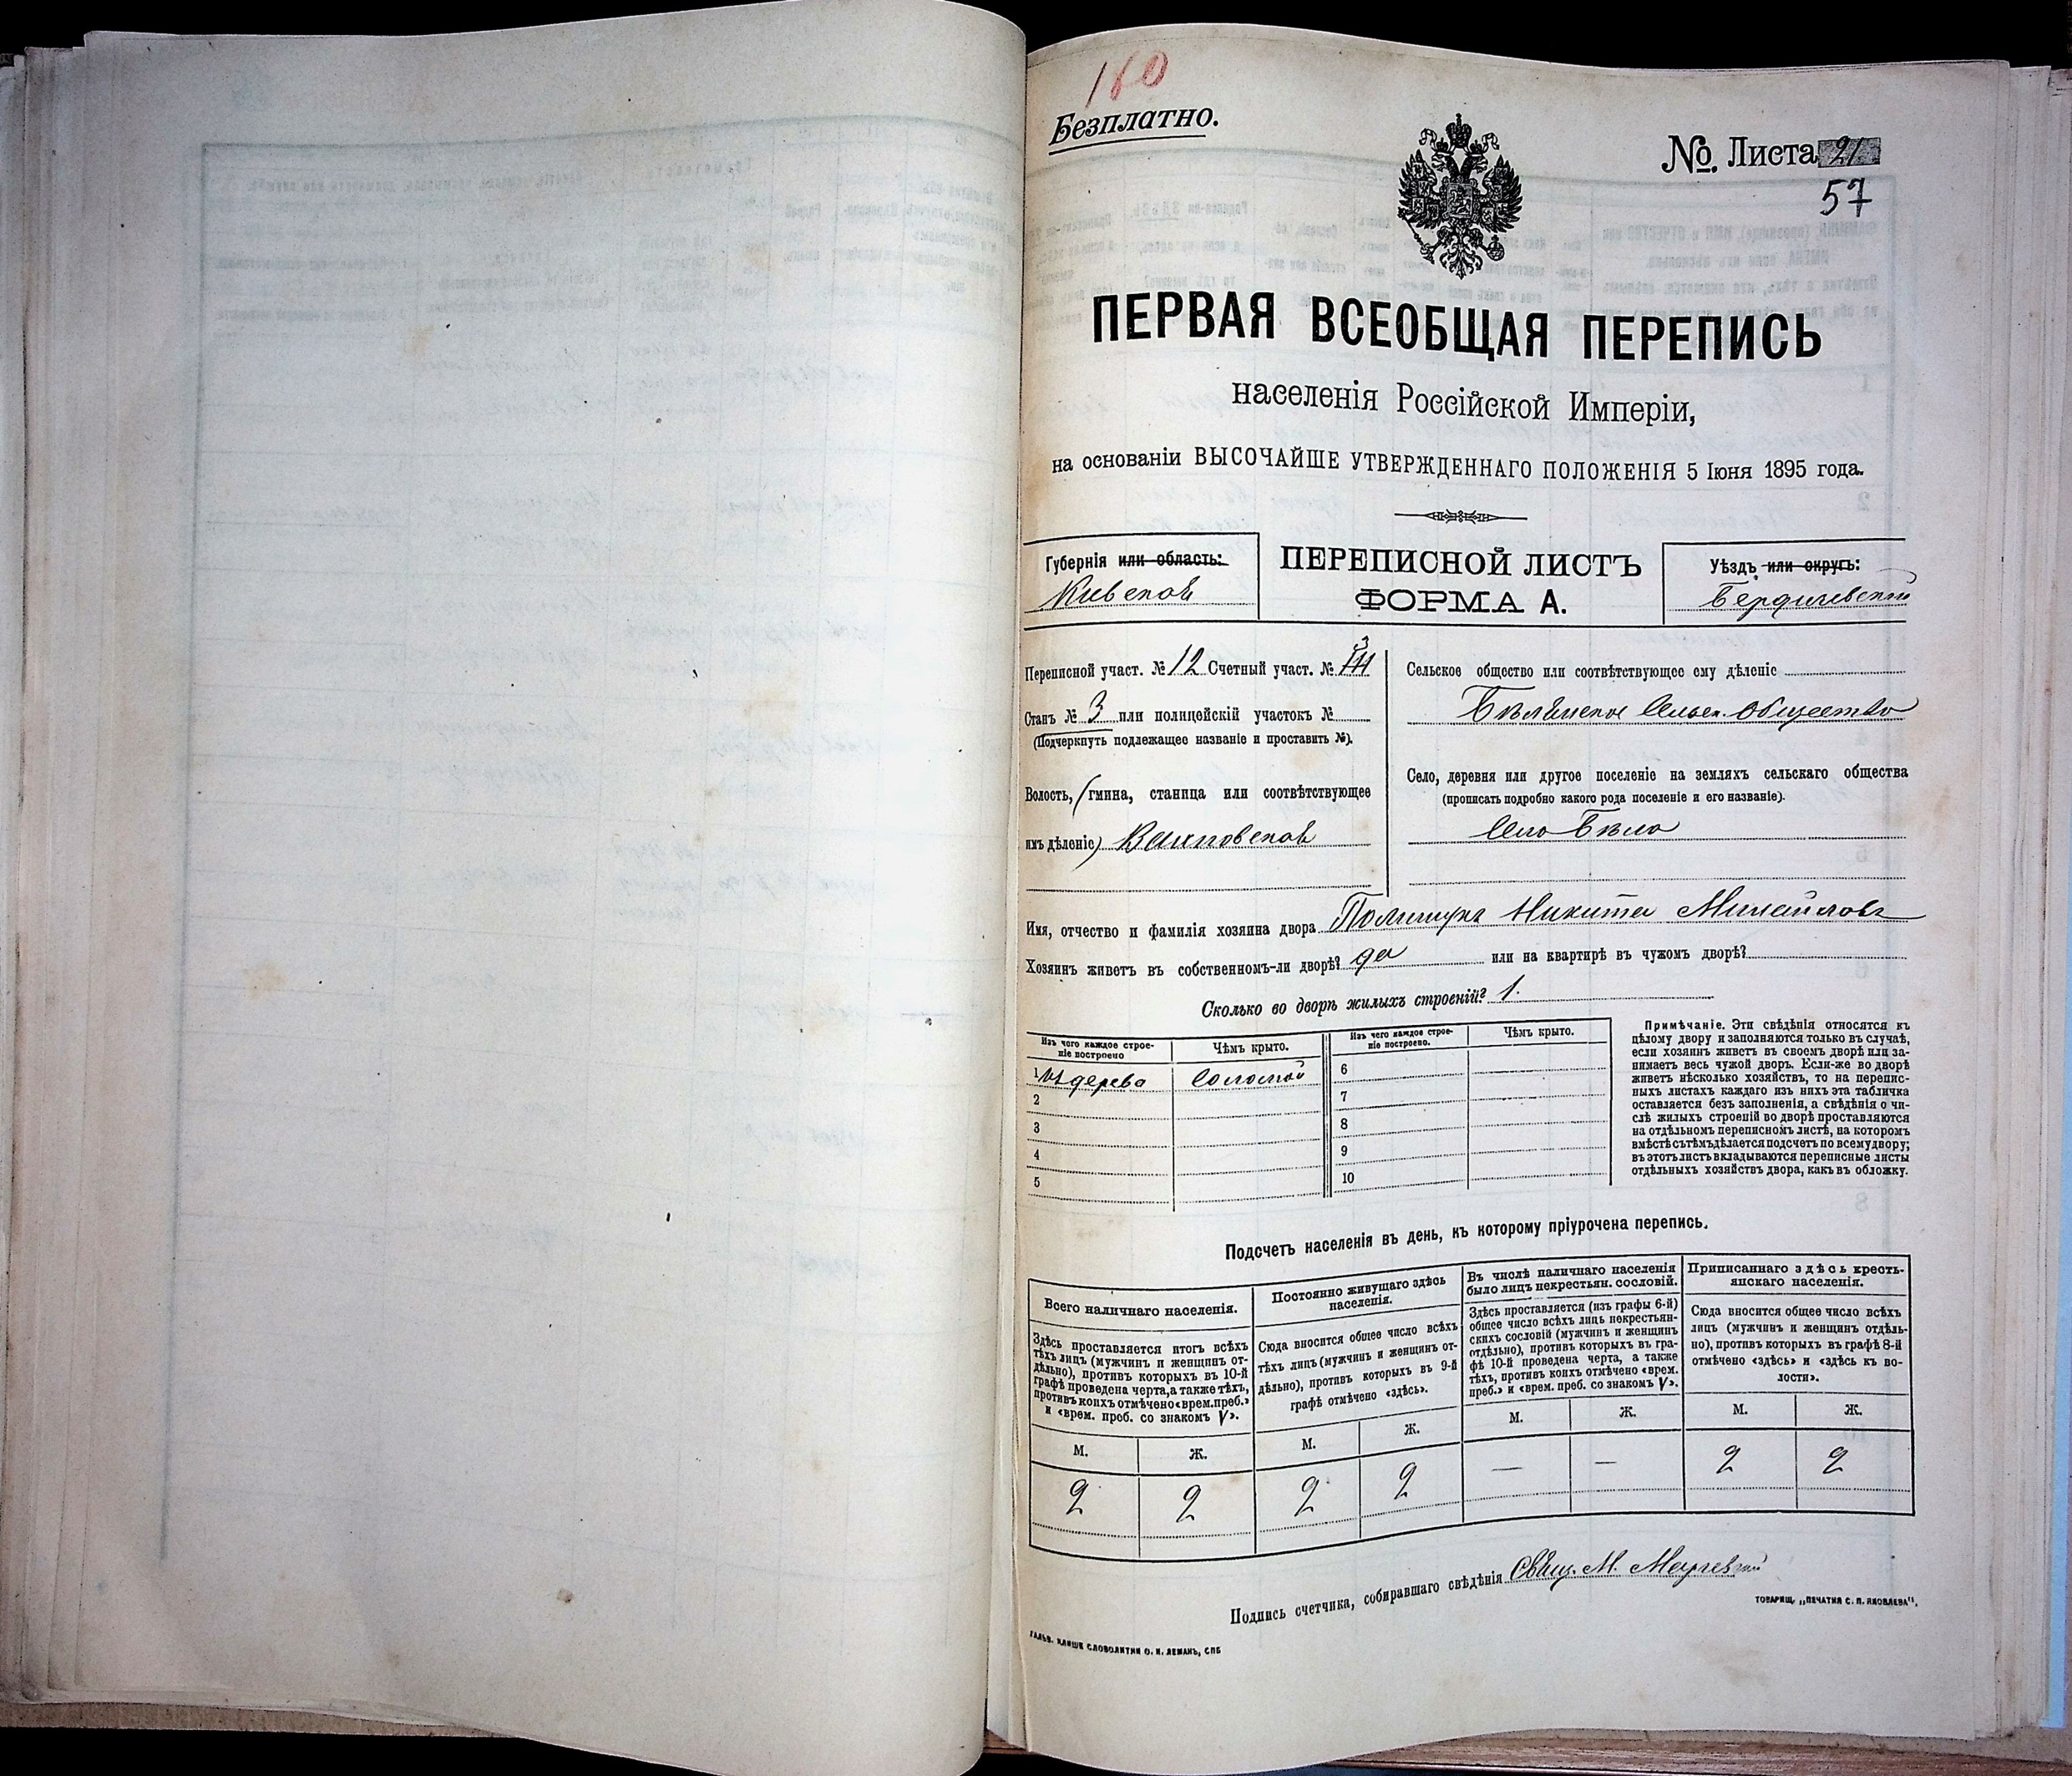 160
Безплатно.
№ Листа 21
57
ПЕРВАЯ ВСЕОБЩАЯ ПЕРЕПИСЬ
населенія Россійской Имперіи,
на основаніи ВЫСОЧАЙШЕ УТВЕРЖДЕННАГО ПОЛОЖЕНІЯ 5 Іюня 1895 года.
Губернія или область:
Кивская
ПЕРЕПИСНОЙ ЛИСТЪ
ФОРМА А.
Уѣздъ или округъ:
Бердичевский
Переписной участ. № 12 Счетный участ. № 3
Станъ № 3 или полицейскій участокъ №
(Подчеркнуть подлежащее названіе и проставить №).
Волость, (гмина, станица или соотвѣтствующее
имъ дѣленіе)
Сельское общество или соотвѣтствующее ему дѣленіе
Бѣлянское Сельск. Общество
Село, деревня или другое поселеніе на земляхъ сельскаго общества
(прописать подробно какого рода поселеніе и его названіе).
Село Бѣла
Имя, отчество и фамилія хозяина двора Полищукъ Никита Михайловъ
Хозяинъ живетъ въ собственномъ-ли дворѣ? да или на квартирѣ въ чужомъ дворѣ?
Сколько во дворѣ жилыхъ строеній? 1.
Изъ чего каждое строе-
ніе построено
Чѣмъ крыто.
Изъ чего каждое строе-
ніе построено.
Чѣмъ крыто.
1 Из дерева Соломой 6
2 7
3 8
4 9
5 10
Примѣчаніе. Эти свѣдѣнія относятся къ
цѣлому двору и заполняются только въ случаѣ,
если хозяинъ живетъ въ своемъ дворѣ или за-
нимаетъ весь чужой дворъ. Если-же во дворѣ
живетъ нѣсколько хозяйствъ, то на перепис-
ныхъ листахъ каждаго изъ нихъ эта табличка
оставляется безъ заполненія, а свѣдѣнія о чи-
слѣ жилыхъ строеній во дворѣ проставляются
на отдѣльномъ переписномъ листѣ, на которомъ
вмѣстѣ съ тѣмъ дѣлается подсчетъ по всему двору;
въ этотъ листъ вкладываются переписные листы
отдѣльныхъ хозяйствъ двора, какъ въ обложку.
Подсчетъ населенія въ день, къ которому пріурочена перепись.
Всего наличнаго населенія.
Здѣсь проставляется итогъ всѣхъ
тѣхъ лицъ (мужчинъ и женщинъ от-
дѣльно), противъ которыхъ въ 10-й
графѣ проведена черта, а также тѣхъ,
противъ коихъ отмѣчено «врем. преб.»
и «врем. преб. со знакомъ V».
М. Ж.
2 2
Постоянно живущаго здѣсь
населенія.
Сюда вносится общее число всѣхъ
тѣхъ лицъ (мужчинъ и женщинъ от-
дѣльно), противъ которыхъ въ 9-й
графѣ отмѣчено «здѣсь».
М. Ж.
2 2
Въ числѣ наличнаго населенія
было лицъ некрестьян. сословій.
Здѣсь проставляется (изъ графы 6-й)
общее число всѣхъ лицъ некрестьян-
скихъ сословій (мужчинъ и женщинъ
отдѣльно), противъ которыхъ въ гра-
фѣ 10-й проведена черта, а также
тѣхъ, противъ коихъ отмѣчено «врем.
преб.» и «врем. преб. со знакомъ V».
М. Ж.
— —
Приписаннаго здѣсь кресть-
янскаго населенія.
Сюда вносится общее число всѣхъ
лицъ (мужчинъ и женщинъ отдѣль-
но), противъ которыхъ въ графѣ 8-й
отмѣчено «здѣсь» и «здѣсь къ во-
лости».
М. Ж.
2 2
Подпись счетчика, собиравшаго свѣдѣнія Свящ. М.
ТОВАРИЩ. „ПЕЧАТНЯ С. П. ЯКОВЛЕВА“.
ГАЛЬВ. КЛИШЕ СЛОВОЛИТНИ О. И. ЛЕМАНЪ, СПБ